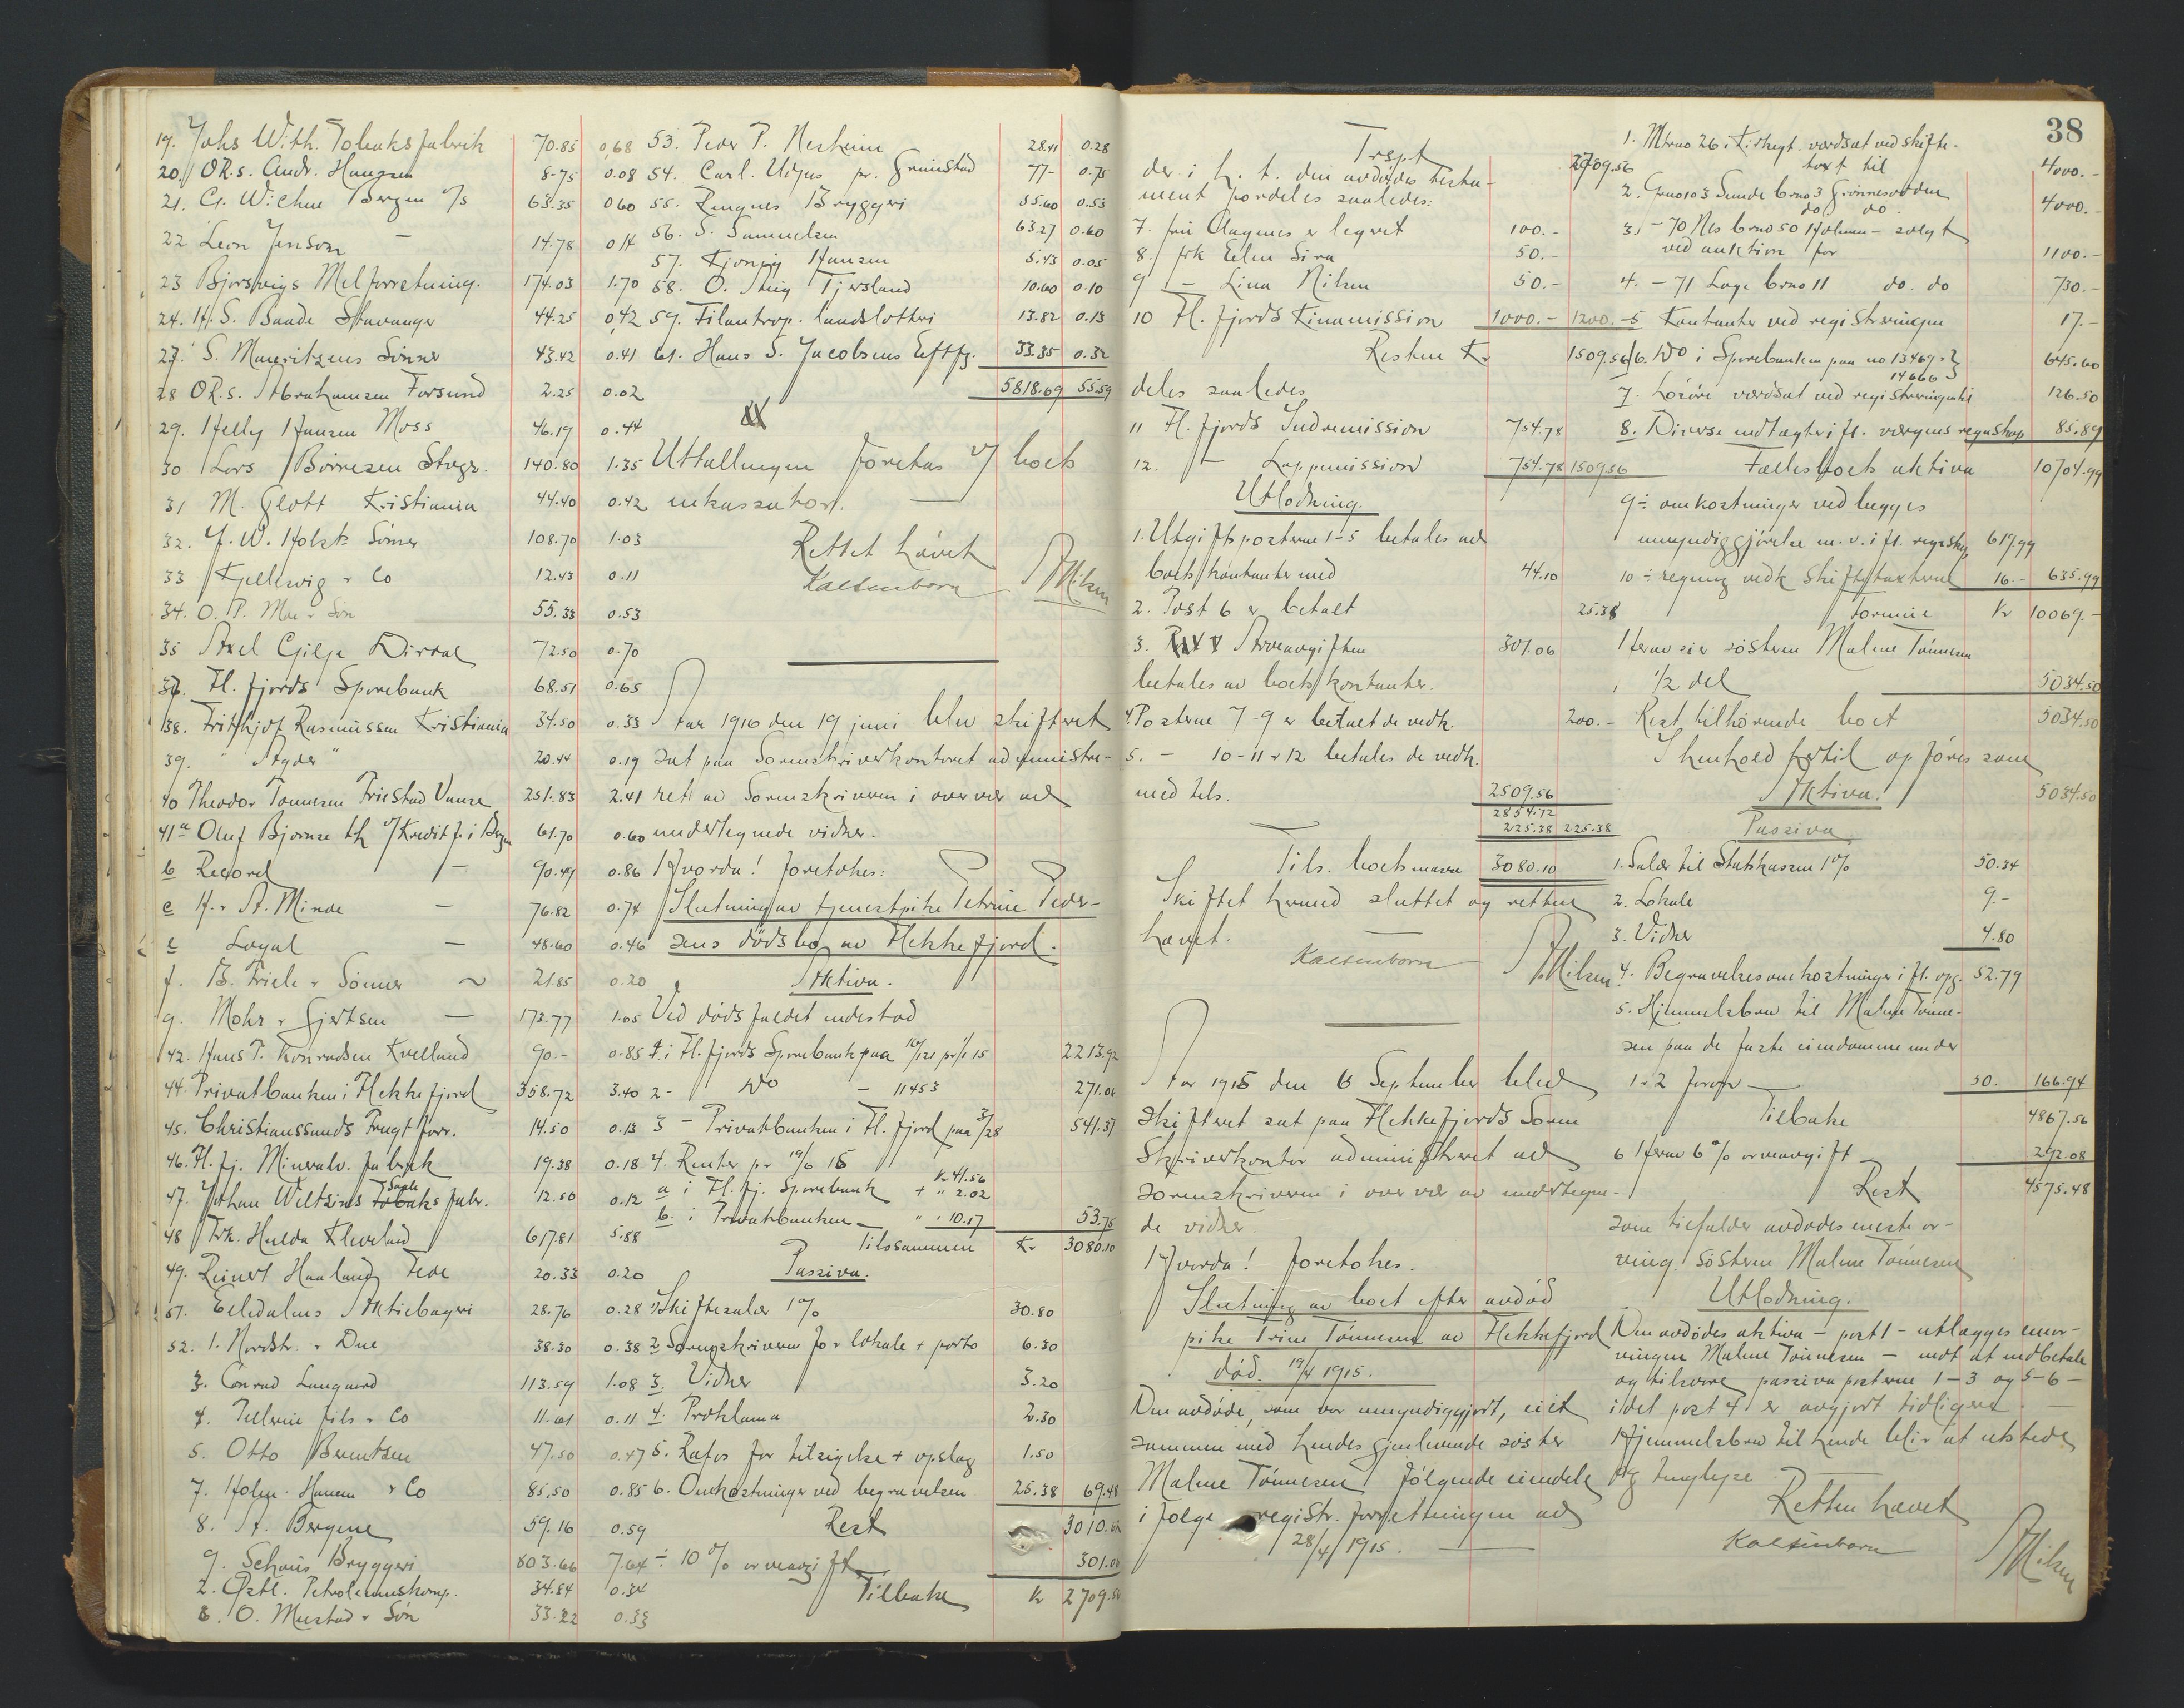 19. Johs With. Tobaksfabrik 70.85 0,68
20. OR.s. Andr. Hanssen 8-75 0.08
21. C. Wiehne Bergen 63.35 060
22 Leon Jenson — 14.78 0 14
23 Bjorsvigs Melforretning. 174.03 1.70
24. H. S. Baade Stavanger 44.25 0,42
27. S. Mauritzens Sönner 43.42 0.41
28 OR.s. Abrahamsen Forsund 2.25 0.02
29. Helly Hansen Moss 46.19 0.44
30 Lars Börresen Stvgr. 140.80 1.35
31 M. Glott Kristiania 44.40 0.42
32. J. W. Holst Sönner 108.70 1.03
33 Kjellevig & Co 12.43 0.11
34. O. P. Moe & Sön 55.33 0.53
35 Axel Gilje Dirdal 72.50 0.70
37. Fl. fjords Sparebank 68.51 0.65
38. Frithjof Rasmussen Kristiania 34.50 0.33
39. "Agder" 20.44 0.19
40 Theodor Tönnesen Friestad Vanse 251.83 2.41
41a Oluf Bjørnse th v/ Kredit f. i Bergen 61.70 0.60
b Record — 90.49 0.86
c H. & A. Minde — 76.82 0.74
e Loyal — 48.60 0.46
f. B. Friele & Sönner ~ 21.85 0.20
g. Mohr & Gjertsen — 173.77 1.65
42. Hans T. Konradsen Kvelland 90.- 0.85
44. Privatbanken i Flekkefjord 358.72 3.40
45. Christianssands Frugtforr. 14.50 0.13
46. Fl. fj. Mineralv. fabrik 19.38 0.18
47. Johan Weltzins Saale Tobaks fabr. 12.50 0.12
48 Frk. Hulda Kleveland 617.81 5.88
49. Reinert Haaland Fede 20.33 0.20
51. Eeledalens Aktiebageri 28.76 0.28
52. 1. Nordstr. & Due 38.30 0.38
3. Conrad Langaard 113.59 1.08
4. Pellerin fils & Co 11.61 0.11
5. Otto Berentsen 47.50 0.47
7. Holm-Hansen & Co 85.50 0.85
8. A. Bergene 59.16 0.59
9. Schous Bryggeri 803.66 7.64
2. Östl. Petroleumskomp. 34.84 0.34
3. O. Mustad & Sön 33.22 0.33
53. Peder P. Neskeim 28.41 0.28
54. Carl. Udjus pr. Grimstad 77- 0.75
55. Ringnes Bryggeri 55.60 0.53
56. S. Samuelsen 63.27 0.60
57. Kjonig Hansen 5.43 0.05
58. O. Stuig Tjersland 10.60 0.10
59. Filantrop. landslotteri 13.82 0.13
61. Hans S. Jacobsens Eeftfg. 33.35 0.32
5818.69 55.59
Uttallingen foretas v/ boets
inkassator. —
Rettet hævet
Kaltenborn ANilsen
Aar 1916 den 19 juni blev skifteret
sat paa Sorenskriverkontoret administre-
ret av Sorenskriveren i overvær av
undertegnede vidner.
Hvorda! foretokes:
Slutning av tjenestpike Petrine Peder-
sens dödsbo av Flekkefjord.
Aktiva.
Ved dödsfaldet indestod
1. i Fl. fjords Sparebank paa 10/121 pr 1/1 15 2213.92
2 - Do — 11453 271.06
3 - Privatbanken i Fl. fjord paa 3/28 541.37
4. Renter pr 19/6 15
a i Fl. fj. Sparebank Kr 41.56 + " 2.02
b. i Privatbanken — " 10.17 53.75
Tilssammen Kr 3080.10
Passiva.
1. Skiftesalær 1% 30.80
2 Sorenskriveren for lokale + porto 6.30
3. Vidner 3.20
4. Proklama 2.30
5. Rafos for tilsigelse + opslag 1.50
6. Omkostninger ved begravelsen 25.38 69.48
Rest 3010.62
÷ 10% arveavgift 301.06
Tilbake Kr 2709.56
Trspt 2709.56
der i h. t. den avdödes testa-
ment fordeles saaledes:
7. fru Aagenes er legeret 100.-
8. frk Eelen Sira 50.-
9 — Lina Nilsen 50.-
10 Fl. fjords Kinamission 1000.- 1200.-
Resten Kr 1509.56
deles saaledes
11 Fl. fjords Indremission 754.78
12. — Lappemission 754.78 1509.56
Utlodning.
1. Utgiftsposterne 1-5 betales av
boets kontanter med 44.10
2. Post 6 er betalt 25.38
3. Arveavgiften 301.06
betales av boets kontanter.
4. Posterne 7-9 er betalt de vedk. 200.-
5. — 10-11 & 12 betales de vedk.
med tils. 2509.56
2854.72
225.38 225.38
Tils. boets masse 3080.10
Skiftet hermed sluttet og retten
hævet.
Kaltenborn ANilsen
Aar 1915 den 6 September blev
skifteret sat paa Flekkefjords Soren
skriverkontor administreret av
sorenskriveren i overvær av undertegne-
de vidner.
Hvorda! foretokes.
Slutning av boet efter avdöd
pike Trine Tönnesen av Flekkefjord
död. 19/4 1915.
Den avdöde, som var umyndiggjort, eiet
sammen med hendes gjenlevende söster
Malene Tönnesen fölgende eiendele
i fölge registr. forretningen av
28/4 1915. —
38
1. Mtrno 26 i Kirkegt. værdsat ved skifte-
taxt til 4000.-
2. Gno 103 Sunde bno 3 Grönnesvodden
do do. 4000.-
3. — 70 Nes bno 50 Holmen - solgt
ved auktion for 1100.-
4. — 71 Loge bno 11 do. do 730.-
5 Kontanter ved registreringen 17.-
6. Do i Sparebanken paa no 13469 & 14666 645.60
7. Lösöre værdsat ved registreringen til 126.50
8. Diverse indtægter ifl. værgens regnskap 85.89
Fællesboets aktiva 10704.99
9 ÷ omkostninger ved begges
umyndiggjörelse m. v. ifl. regnskap 619.99
10 ÷ regning vedk skiftetaxterne 16.- 635.99
Formue Kr 10069.-
Herav eier sösteren Malene Tönnesen
1/2 del 5034.50
Rest tilhörende boet 5034.50
I henhold hertil opföres som
Aktiva. 5034.50
Passiva
1. Salær til Statskassen 1% 50.34
2. Lokale 9.-
3. Vidner 4.80
4. Begravelsesomkostninger ifl. opg. 52.79
5. Hjemmelsbrev til Malene Tönne-
sen paa de faste eiendomme under
1 & 2 foran — 50. 166.94
Tilbake 4867.56
6 Herav 6% arveavgift — 292.08
Rest 4575.48
som tilfalder avdödes eneste ar-
ving sösteren Malene Tönnesen
Utlodning.
Den avdödes aktiva - post 1 - utlægges enear-
vingen Malene Tönnesen - mot at indbetale
og tilsvare passiva posterne 1-3 og 5-6 -
idet post 4 er avgjort tidligere. —
Hjemmelsbrev til hende blir at utstede
og tinglyse.
Retten hævet
Kaltenborn ANilsen